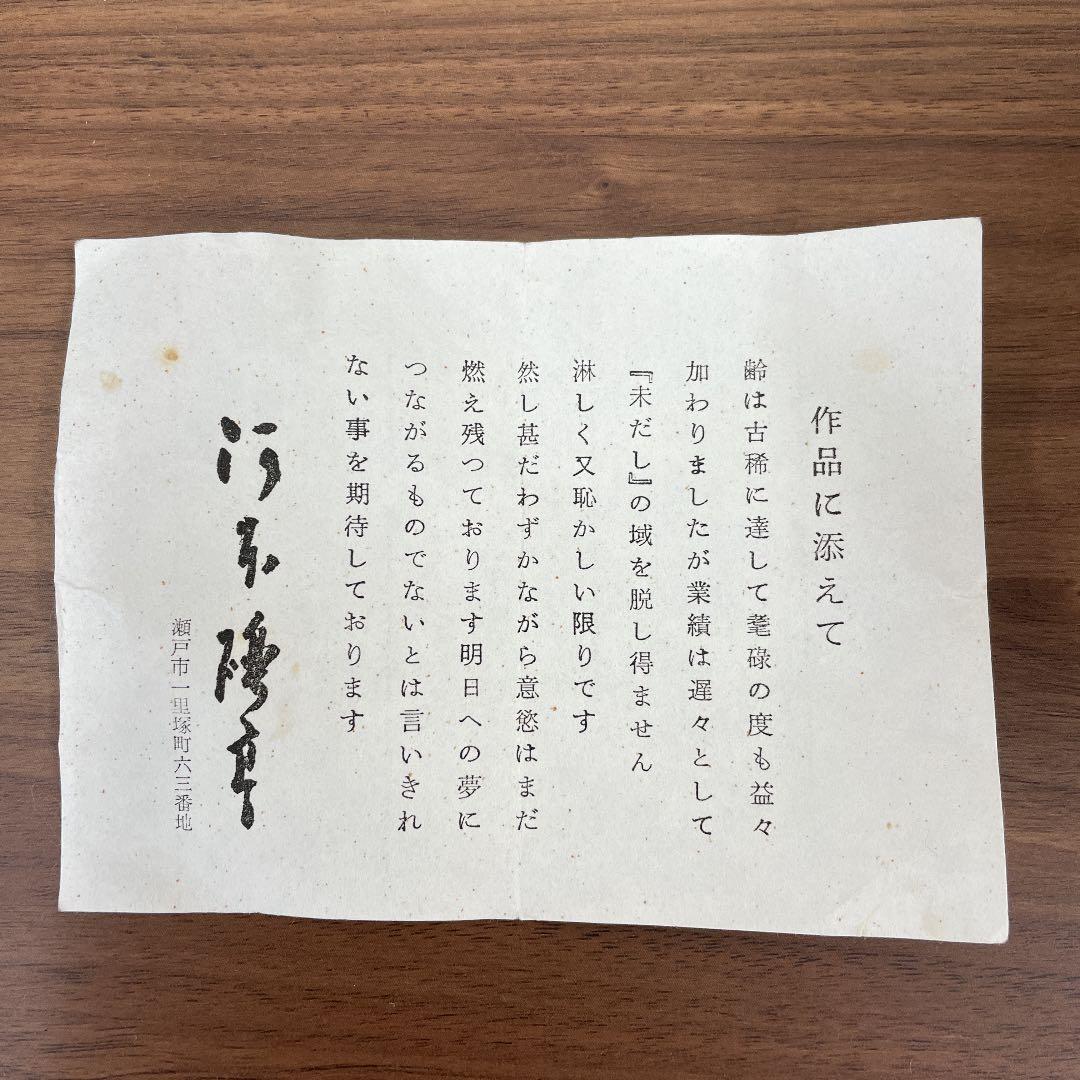 作品に添えて
齢は古稀に達して耄碌の度も益々
加わりましたが業績は遅々として
『未だし』の域を脱し得ません
淋しく又恥かしい限りです
然し甚だわずかながら意慾はまだ
燃え残つております明日への夢に
つながるものでないとは言いきれ
ない事を期待しております
河本礫亭
瀬戸市一里塚町六三番地